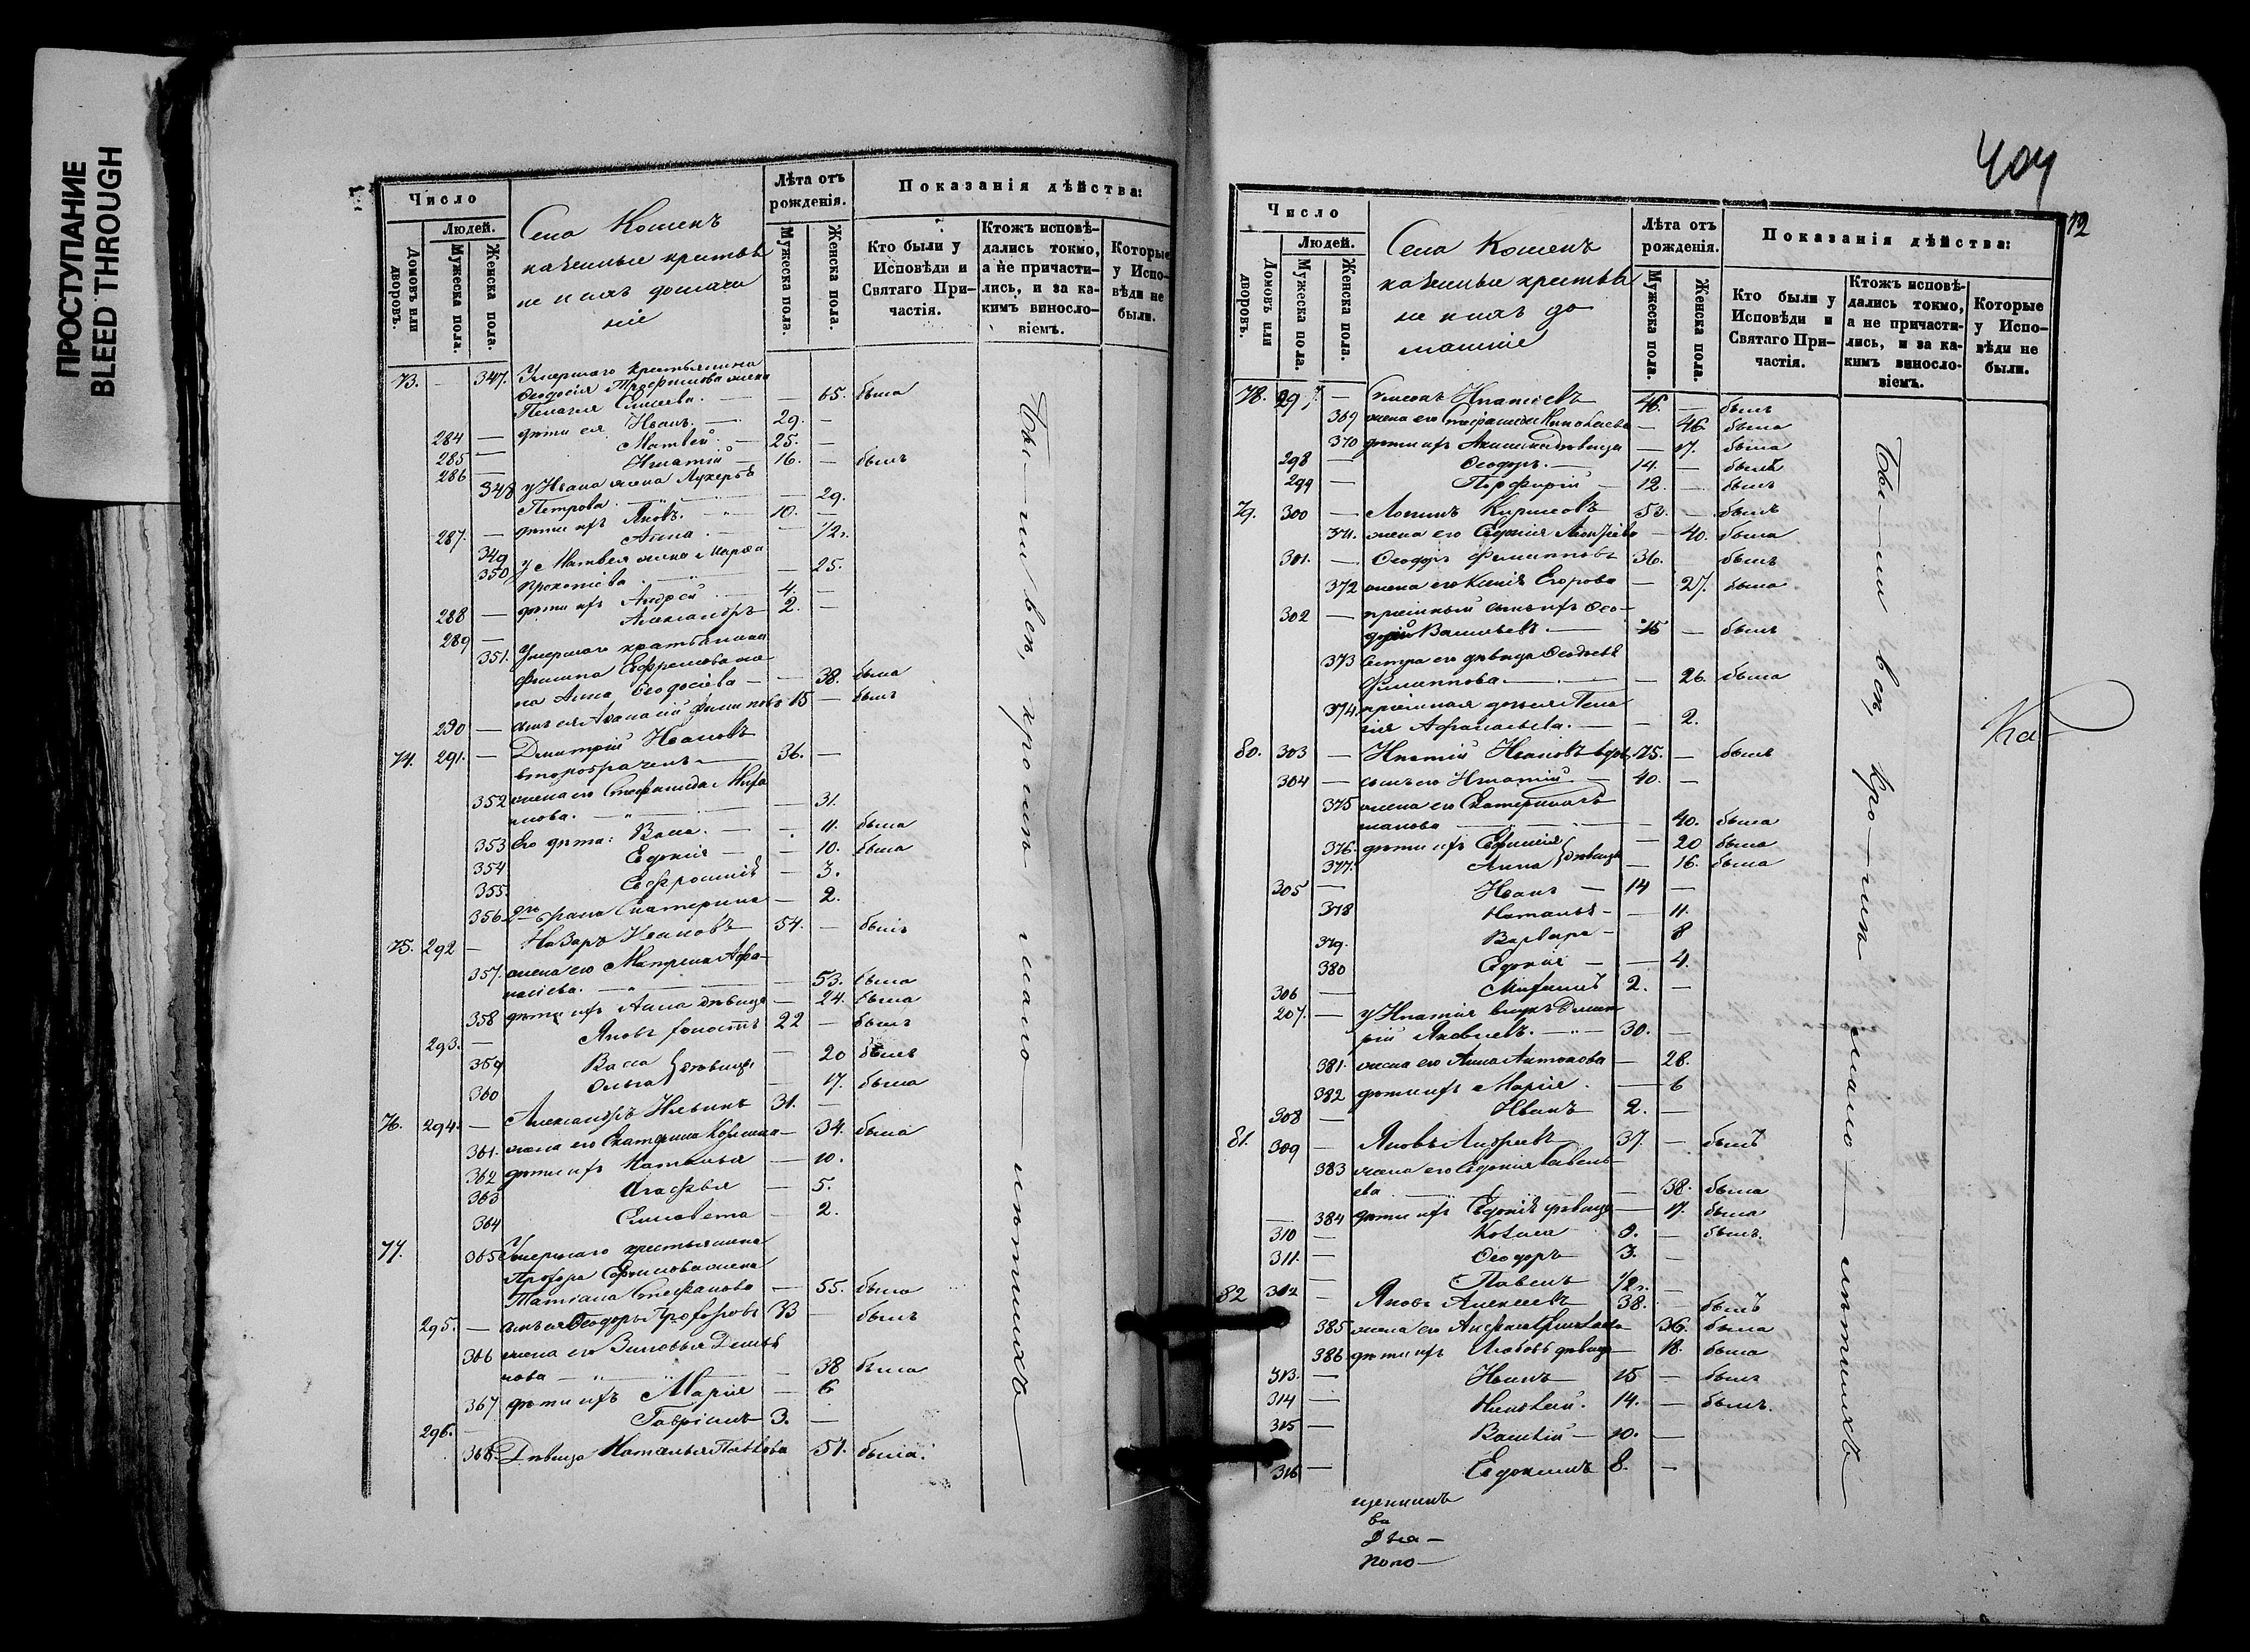 ПРОСТУПАНИЕ
BLEED THROUGH
Число
Людей.
Домовъ или дворовъ.
Мужеска пола.
Женска пола.
Села Кошекъ
казенные крестья
не и ихъ домаш
ніе
Лѣта отъ рожденія.
Мужеска пола.
Женска пола.
Показанія дѣйства:
Кто были у Исповѣди и Святаго При-частія.
Ктожъ исповѣ-дались токмо, а не причасти-лись, и за ка-кимъ винословіемъ.
Которые у Испо-вѣди не были.
73. — 347. Умершаго крестьянина
Ѳеодосія Трофимова жена
Пелагея Елисеева. — — 65. была
284 — дѣти ея Иванъ. — 29. —
285 — Матвей. — 25. —
286 — Игнатій — 16. — былъ
348 у Ивана жена Лукерья
Петрова — 29.
287. — дѣти ихъ Яковъ. — 10. —
349 Анна. — — 1/2 г.
350 у Матвея жена Марѳа
Прокопіева — 25.
288 — дѣти ихъ Андрей — 4. —
289 — Александръ 2. —
351. Умершаго крестьянина
Филипа Ефремова же
на Анна Ѳеодосіева — — 38. была
290 — сынъ ея Аѳанасій Филиповъ 15 — былъ
74. 291. — Дмитрій Ивановъ
второбраченъ — 36. —
352 жена его Стефанида Миха
илова. — — 31.
353 Его дѣти: Васса. — — 11. была
354 Евдокія — — 10. была
355 Евфросинія — 3.
356 2го брака Екатерина — 2.
75. 292 — Назаръ Ивановъ 54. — былъ
357. жена его Матрена Аѳа-
насіева. — — 53. была
358 дѣти ихъ Анна дѣвица — 24. была
293. — Яковъ холостъ 22 — былъ
359 Васса — 20 была
360 Ольга дѣвицы — 17. была
76. 294. — Александръ Ильинъ 31. —
361. жена его Екатерина Козмина — 34. была
362 дѣти ихъ Наталья — 10.
363 Агафья — 5.
364 Елисавета — 2.
77. 365 Умершаго крестьянина
Прохора Ефимова жена
Татіана Стефанова — 55. была
295. — сынъ ея Ѳеодоръ Прохоровъ 33 — былъ
366 жена его Зиновья Демья
нова — — 38 была
367 дѣти ихъ Марія — 6
296. — Гавріилъ 3. —
368. Дѣвица Наталья Павлова 51. была.
Бы — ли всѣ, кромѣ мало — лѣтнихъ
404
12
Число
Людей.
Домовъ или дворовъ.
Мужеска пола.
Женска пола.
Села Кошекъ
казенные крестья
не и ихъ до
машніе
Лѣта отъ рожденія.
Мужеска пола.
Женска пола.
Показанія дѣйства:
Кто были у Исповѣди и Святаго При-частія.
Ктожъ исповѣ-дались токмо, а не причасти-лись, и за ка-кимъ винословіемъ.
Которые у Испо-вѣди не были.
78. 297 — Игнатьевъ 46. — былъ
369 жена его Стефанида — 46 была
370 дѣти ихъ Акилина дѣвица — 17. была
298 — Ѳеодоръ. — 14. — былъ
299 — Порфирій — 12. — былъ
79. 300 — Логинъ Кириловъ 53. — былъ
371. жена его Евдокія — 40. была
301. — Ѳеодоръ Филипповъ 36. былъ
372 жена его Ксенія Егорова — 27. была
302 — пріемный сынъ ихъ Ѳео-
доръ Васильевъ. — 15 — былъ
373 Сестра его дѣвица Ѳеодосья
Филиппова. — — 26. была
374. пріемная дочь Пела
гея Аѳанасьева. — — 2.
80. 303 — Игнатій Ивановъ вдов. 75. — былъ
304 — сынъ его Игнатій — 40. —
375 жена его Екатерина
— 40. была
376. дѣти ихъ Ефимія — 20 была
377. Анна дѣвицы — 16. была
305 — Иванъ — 14 —
378 Наталья — — 11.
379. Варвара — 8
380 Евдокія — — 4.
306 — Михаилъ 2. —
207. — у Игнатія внукъ Дмит
рій Яковлевъ. — 30. —
381. жена его Анна Антонова — 28.
382 дѣти ихъ Марія. — 6
308 — Иванъ 2. —
81. 309 — Яковъ Андреевъ 37. — былъ
383 жена его Евдокія Савель
ева — 38. была
384 дѣти ихъ Евдокія дѣвица — 17. была
310 — Козма 9. — былъ.
311. — Ѳеодоръ 3. —
312 — Павелъ 1/2 г. —
82 Яковъ Алексеевъ 38. — былъ
385 жена его — 36. была
386 дѣти ихъ Любовь дѣвица — 18. была
313. — Иванъ 15 — былъ
314 — Николай. 14. — былъ.
315 — Василій — 10. —
316 — Евдокимъ 8. —
Бы — ли всѣ, кро — мѣ мало — лѣтнихъ
Ка